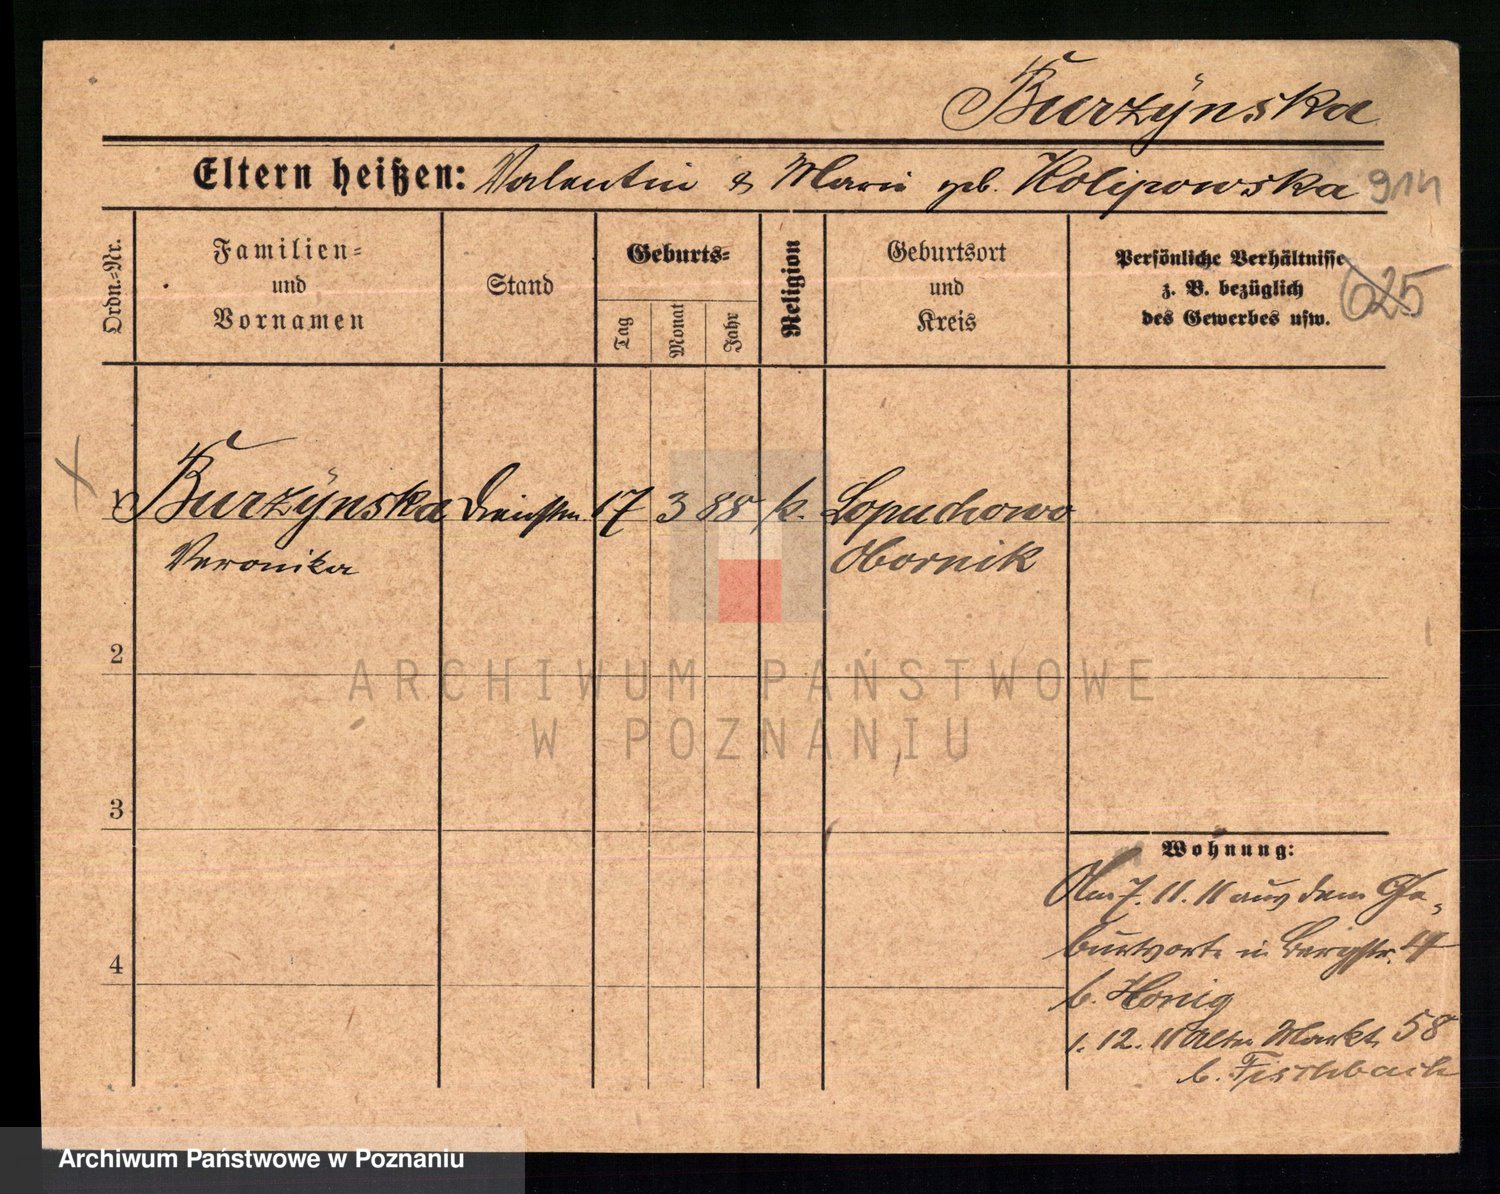 Burzÿnska
Eltern heißen: Valentin & Marie geb. Kolipowska 914
Ordn.-Nr.
Familien-
und
Vornamen
Stand
Geburts-
Tag
Monat
Jahr
Religion
Geburtsort
und
Kreis
Persönliche Verhältnisse
z. B. bezüglich
des Gewerbes usw.
625
1 Burzÿnska Dienstm. 17 3 88 k. Lopuchowo
Veronika Obornik
2
3
4
Wohnung:
Am 7. 11. 11 aus dem Ge-
burtsorte n. Bergstr. 4
b. Honig
1. 12. 11 Alter Markt 58
b. Fischbach
ARCHIWUM PAŃSTWOWE
W POZNANIU
Archiwum Państwowe w Poznaniu